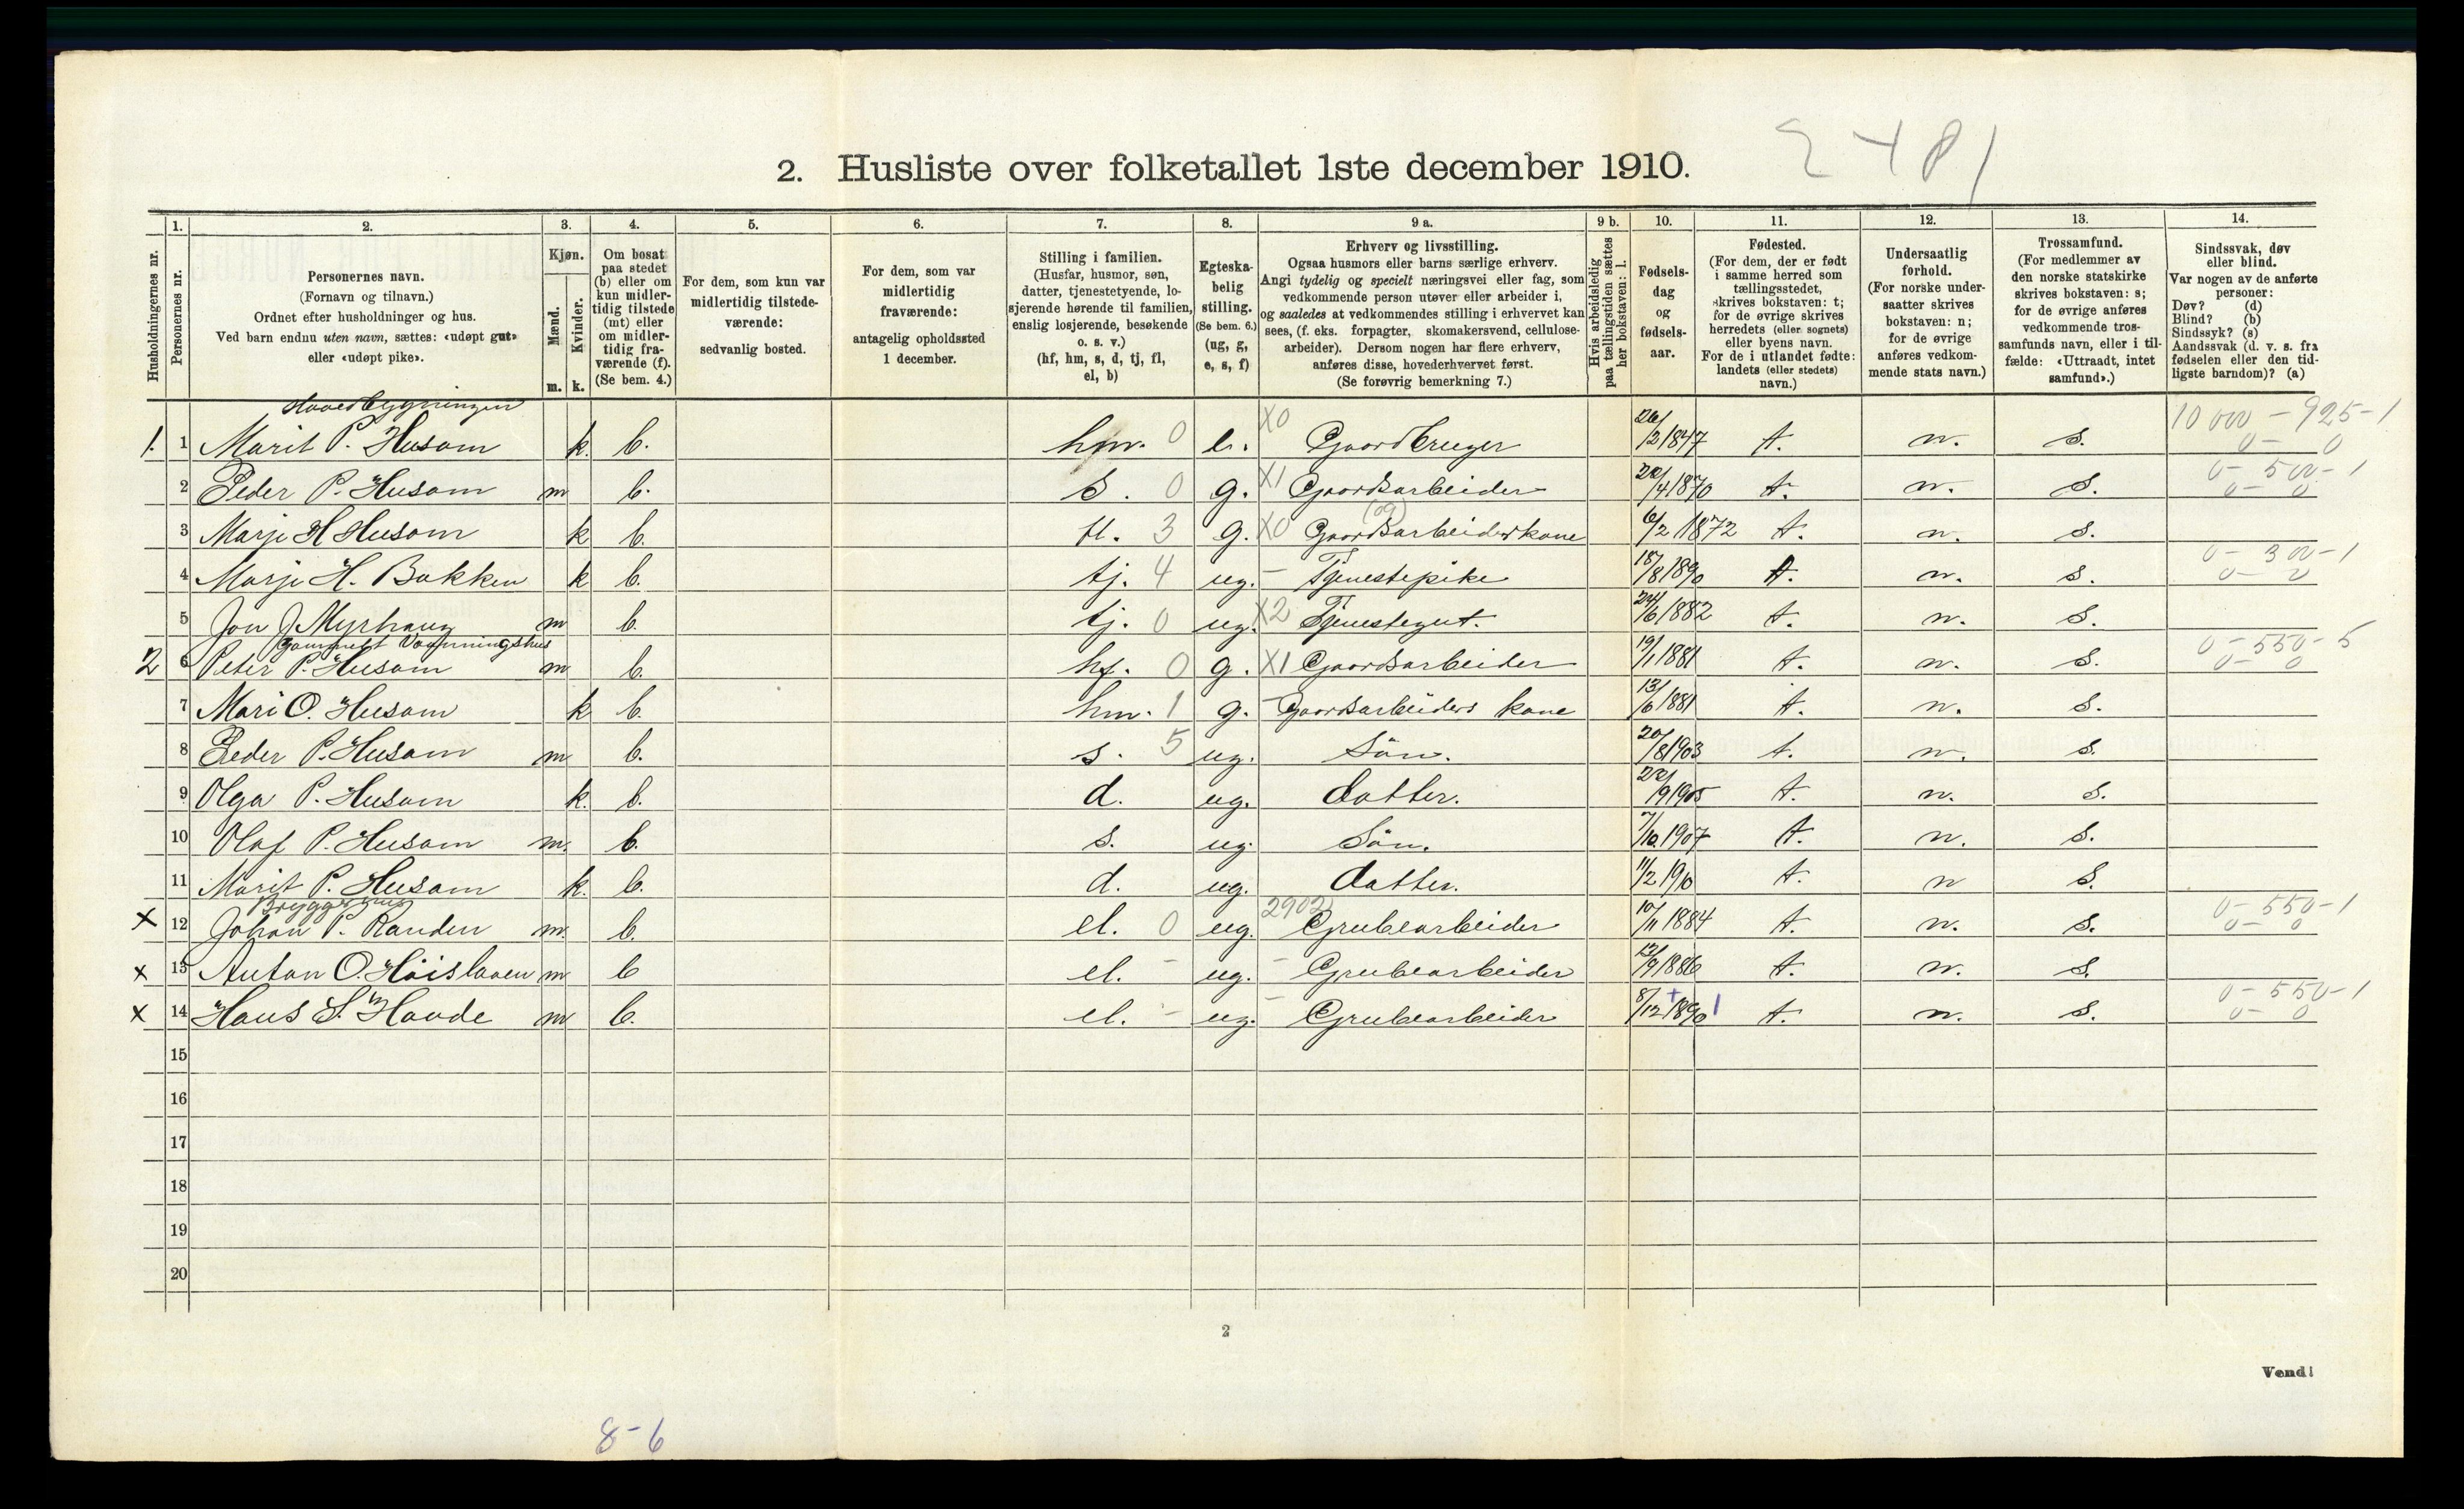 2481
2. Husliste over folketallet 1ste december 1910.
Husholdningernes nr.
1.
Personernes nr.
2.
Personernes navn.
(Fornavn og tilnavn.)
Ordnet efter husholdninger og hus.
Ved barn endnu uten navn, sættes: «udøpt gut»
eller «udøpt pike».
3.
Kjøn.
Mænd.
Kvinder.
m. k.
4.
Om bosat
paa stedet
(b) eller om
kun midler-
tidig tilstede
(mt) eller
om midler-
tidig fra-
værende (f).
(Se bem. 4.)
5.
For dem, som kun var
midlertidig tilstede-
værende:
sedvanlig bosted.
6.
For dem, som var
midlertidig
fraværende:
antagelig opholdssted
1 december.
7.
Stilling i familien.
(Husfar, husmor, søn,
datter, tjenestetyende, lo-
sjerende hørende til familien,
enslig losjerende, besøkende
o. s. v.)
(hf, hm, s, d, tj, fl,
el, b)
8.
Egteska-
belig
stilling.
(Se bem. 6.)
(ug, g,
e, s, f)
9 a.
Erhverv og livsstilling.
Ogsaa husmors eller barns særlige erhverv.
Angi tydelig og specielt næringsvei eller fag, som
vedkommende person utøver eller arbeider i,
og saaledes at vedkommendes stilling i erhvervet kan
sees, (f. eks. forpagter, skomakersvend, cellulose-
arbeider). Dersom nogen har flere erhverv,
anføres disse, hovederhvervet først.
(Se forøvrig bemerkning 7.)
9 b.
Hvis arbeidsledig
paa tællingstiden sættes
her bokstaven: l.
10.
Fødsels-
dag
og
fødsels-
aar.
11.
Fødested.
(For dem, der er født
i samme herred som
tællingsstedet,
skrives bokstaven: t;
for de øvrige skrives
herredets (eller sognets)
eller byens navn.
For de i utlandet fødte:
landets (eller stedets)
navn.)
12.
Undersaatlig
forhold.
(For norske under-
saatter skrives
bokstaven: n;
for de øvrige
anføres vedkom-
mende stats navn.)
13.
Trossamfund.
(For medlemmer av
den norske statskirke
skrives bokstaven: s;
for de øvrige anføres
vedkommende tros-
samfunds navn, eller i til-
fælde: «Uttraadt, intet
samfund».)
14.
Sindssvak, døv
eller blind.
Var nogen av de anførte
personer:
Døv? (d)
Blind? (b)
Sindssyk? (s)
Aandssvak (d. v. s. fra
fødselen eller den tid-
ligste barndom)? (a)
Hovedbygningen
1. 1 Marit P. Husom k. b. hm. 0 e. X0 Gaardbruger 26/2 1847 t. n. s. 10 000 - 925 - 1 0 - 0
2 Peder P. Husom m b. s. 0 g. X1 Gaardsarbeider 22/4 1870 t. n. s. 0 - 500 - 1 0 - 0
3 Marje H Husom k b. fl. 3 g. X0 Gaardsarbeiderskone (og) 6/2 1872 t. n. s.
4 Marje H. Bakken k b. tj. 4 ug. - Tjenestepike 18/8 1890 t. n. s. 0 - 300 - 1 0 - 0
5 Jon J Myrhaug m b. tj. 0 ug. X2 Tjenestegut. 24/6 1882 t. n. s.
Gammelt Vaaningshus
2 6 Peter P. Husom m b. hf. 0 g. X1 Gaardsarbeider 19/1 1881 t. n. s. 0 - 550 - 5 0 - 0
7 Mari O. Husom k b. hm. 1 g. - Gaardsarbeiders kone 13/6 1881 t. n. s.
8 Peder P. Husom m b. s. 5 ug. Sön. 20/8 1903 t. n. s.
9 Olga P. Husom k. b. d. ug. datter. 22/9 1905 t. n. s.
10 Olaf P. Husom m. b. s. ug. Sön. 7/10 1907 t. n. s.
11 Marit P. Husom k. b. d. ug. datter. 11/2 1910 t. n s.
Bryggerhus
X 12 Johan P. Randen m. b. el. 0 ug. 2902 Grubearbeider 10/11 1884 t. n. s. 0 - 550 - 1 0 - 0
X 13 Anton O. Höislaaen m b el. - ug. - Grubearbeider 12/9 1886 t. n. s.
X 14 Hans S. Haade m b. el. - ug. - Grubearbeider 8/12 + 1890 1 t. n. s. 0 - 550 - 1 0 - 0
15
16
17
18
19
20
2
Vend!
8-6